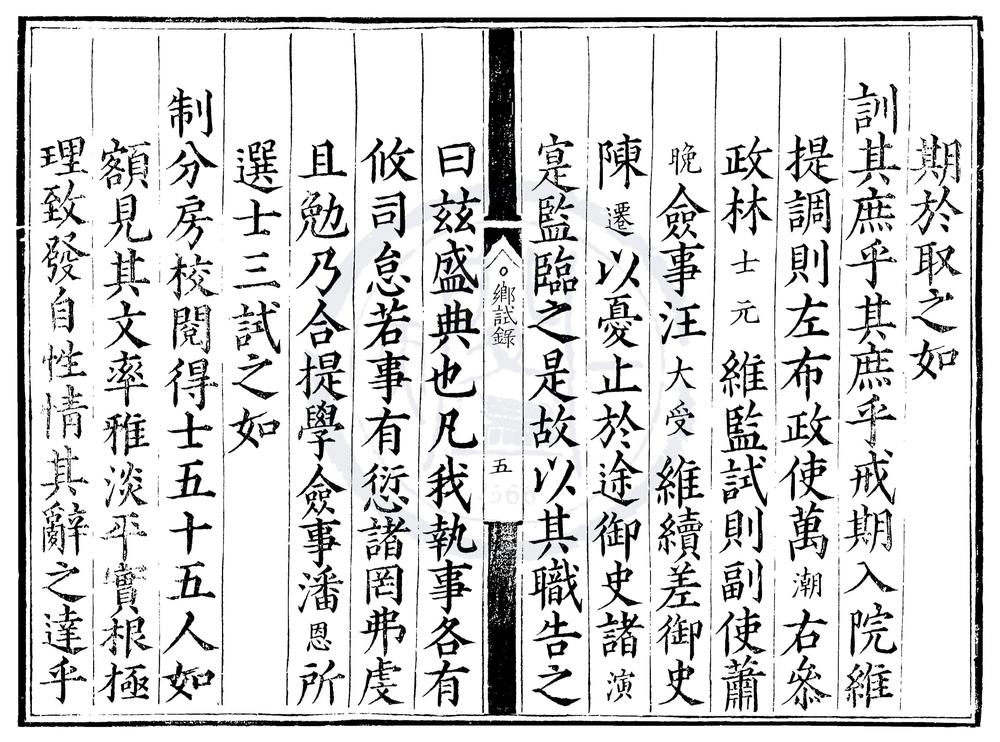 期於取之如
訓其庶乎其庶乎戒期入院維
提調則左布政使萬潮右叅
政林士元維監試則副使蕭
晚僉事汪大受維續差御史
陳遷以憂止於途御史諸演
寔監臨之是故以其職告之
鄉試錄 五
曰兹盛典也凡我執事各有
攸司怠若事有愆諸罔弗虔
且勉乃合提學僉事潘恩所
選士三試之如
制分房校閱得士五十五人如
額見其文率雅淡平實根極
理致發自性情其辭之達乎